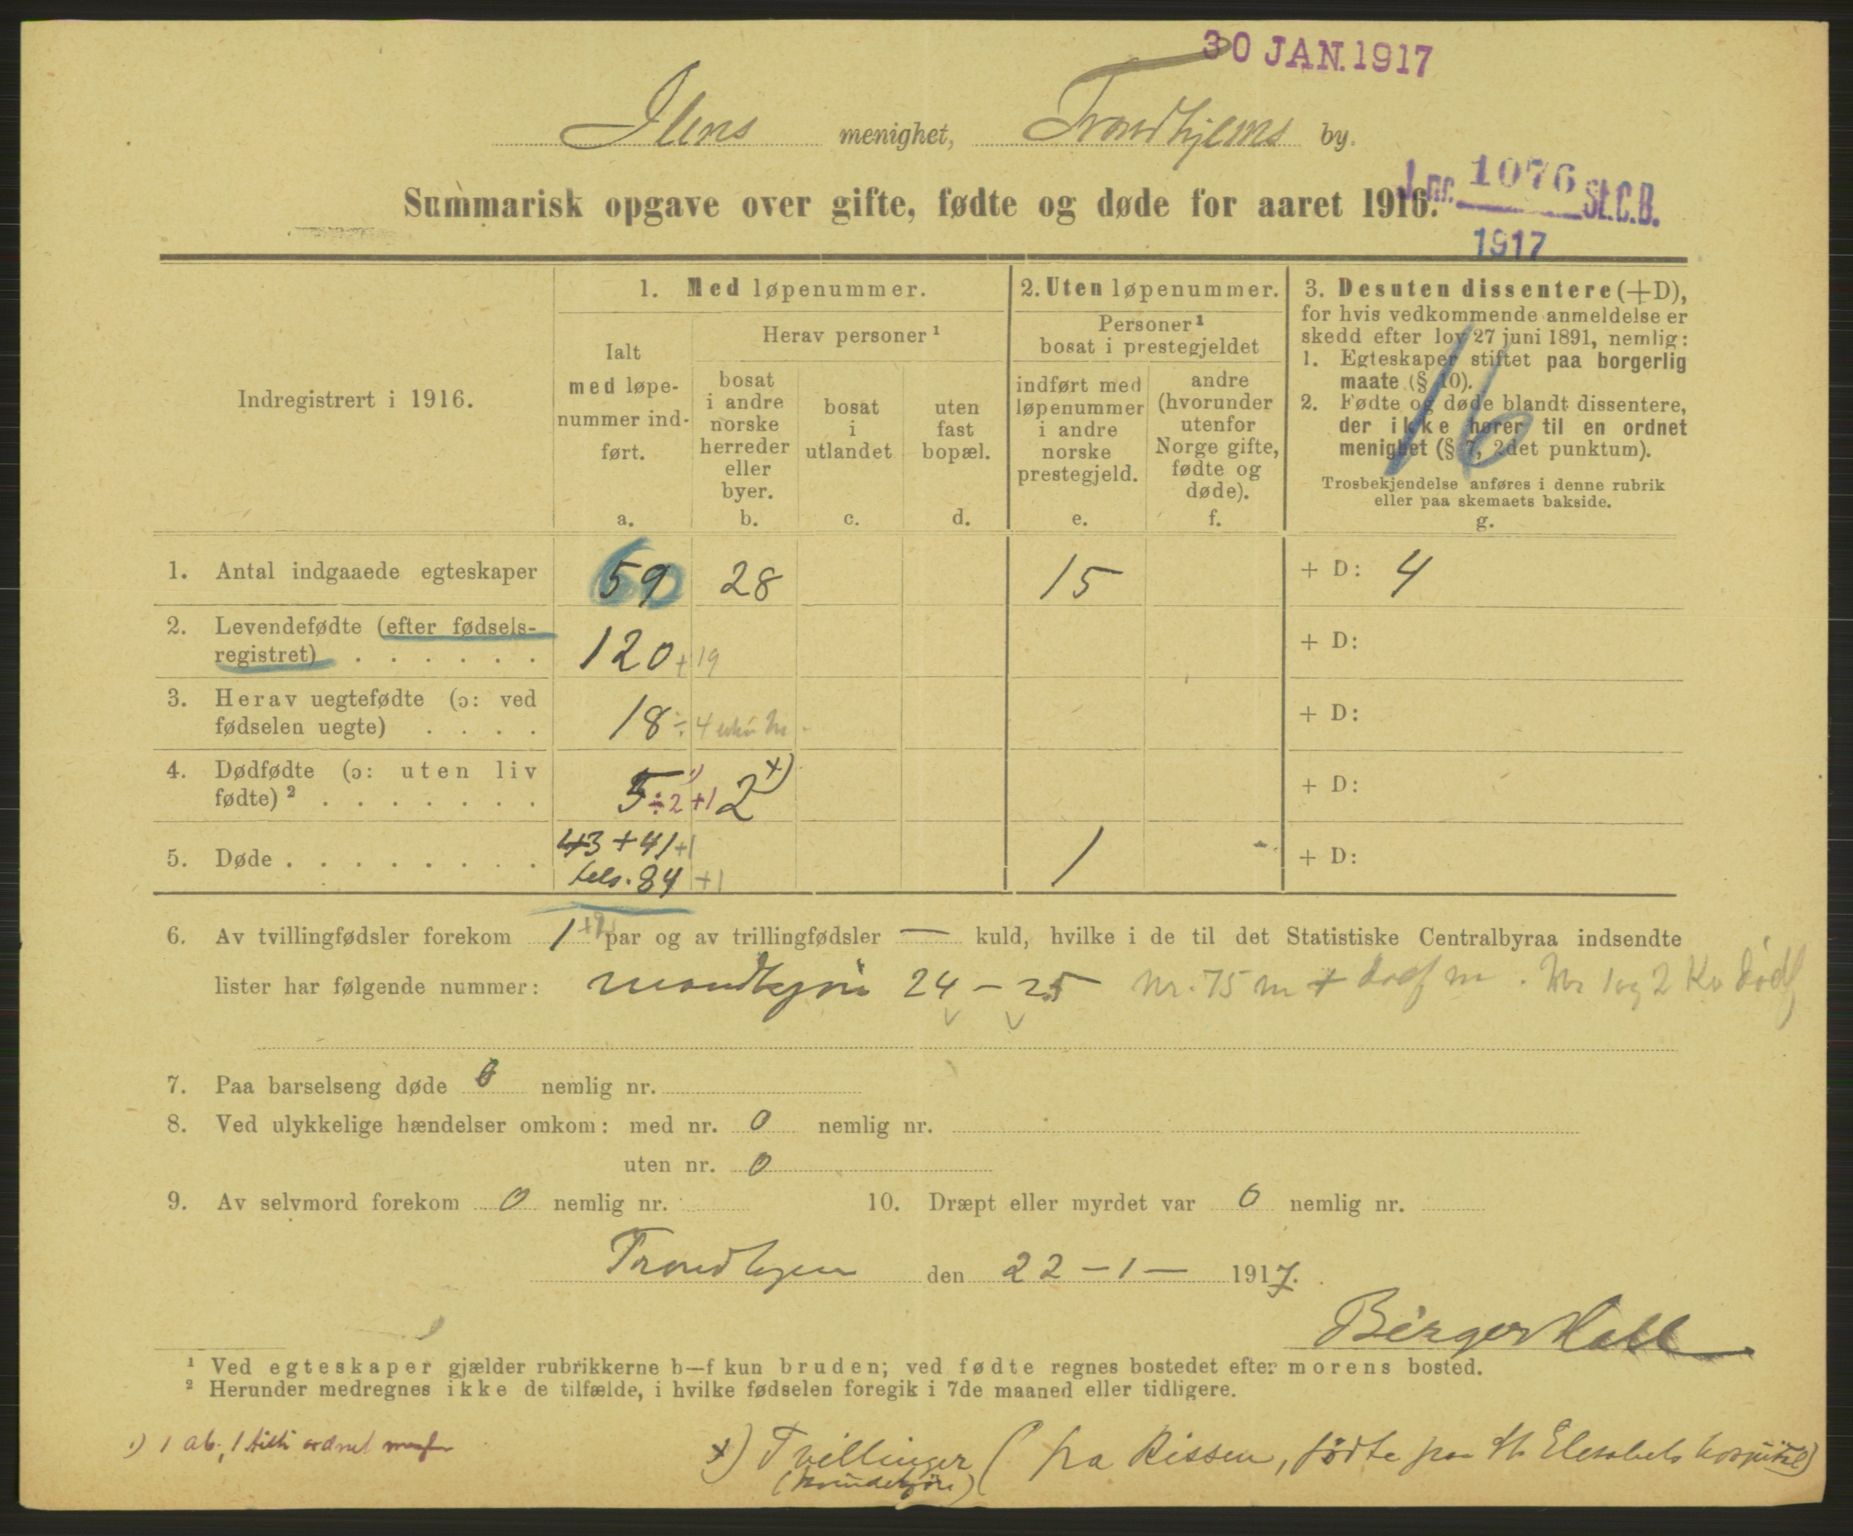 30 JAN. 1917
Ilens menighet, Trondhjems by.
J. nr. 1076 St.C.B.
1917
Summarisk opgave over gifte, fødte og døde for aaret 1916.
Indregistrert i 1916.
1. Med løpenummer.
Ialt
med løpe-
nummer ind-
ført.
a.
Herav personer ¹
bosat
i andre
norske
herreder
eller
byer.
b.
bosat
i
utlandet
c.
uten
fast
bopæl.
d.
2. Uten løpenummer.
Personer ¹
bosat i prestegjeldet
indført med
løpenummer
i andre
norske
prestegjeld.
e.
andre
(hvorunder
utenfor
Norge gifte,
fødte og
døde).
f.
3. Desuten dissentere (+D),
for hvis vedkommende anmeldelse er
skedd efter lov 27 juni 1891, nemlig:
1. Egteskaper stiftet paa borgerlig
maate (§ 10).
2. Fødte og døde blandt dissentere,
der ikke hører til en ordnet
menighet (§ 7, 2det punktum).
Trosbekjendelse anføres i denne rubrik
eller paa skemaets bakside.
g.
16
1. Antal indgaaede egteskaper 59 28 15 + D: 4
2. Levendefødte (efter fødsels-
registret) . . . . . . 120 + 19 + D:
3. Herav uegtefødte (ɔ: ved
fødselen uegte) . . . . 18 ÷ 4 + D:
4. Dødfødte (ɔ: uten liv
fødte) ² . . . . . . . 5 ÷ 2 ¹) + 1 2 ˣ) + D:
5. Døde . . . . . . . . 43 + 41 + 1 1 + D:
tels. 84 + 1
6. Av tvillingfødsler forekom 1 + 2 par og av trillingfødsler — kuld, hvilke i de til det Statistiske Centralbyraa indsendte
lister har følgende nummer: mandkjøn 24 — 25 Nr. 75 m + dødf m. Nr 1 og 2 Kv dødf
7. Paa barselseng døde 0 nemlig nr.
8. Ved ulykkelige hændelser omkom: med nr. 0 nemlig nr.
uten nr. 0
9. Av selvmord forekom 0 nemlig nr. 10. Dræpt eller myrdet var 0 nemlig nr.
Trondhjem den 22 – 1 – 1917.
Birger Hall
¹ Ved egteskaper gjælder rubrikkerne b—f kun bruden; ved fødte regnes bostedet efter morens bosted.
² Herunder medregnes ikke de tilfælde, i hvilke fødselen foregik i 7de maaned eller tidligere.
1) 1 ab., 1
x) Tvillinger ( fra Rissen, fødte paa St Elesabets hospital)
(kvindekjøn)